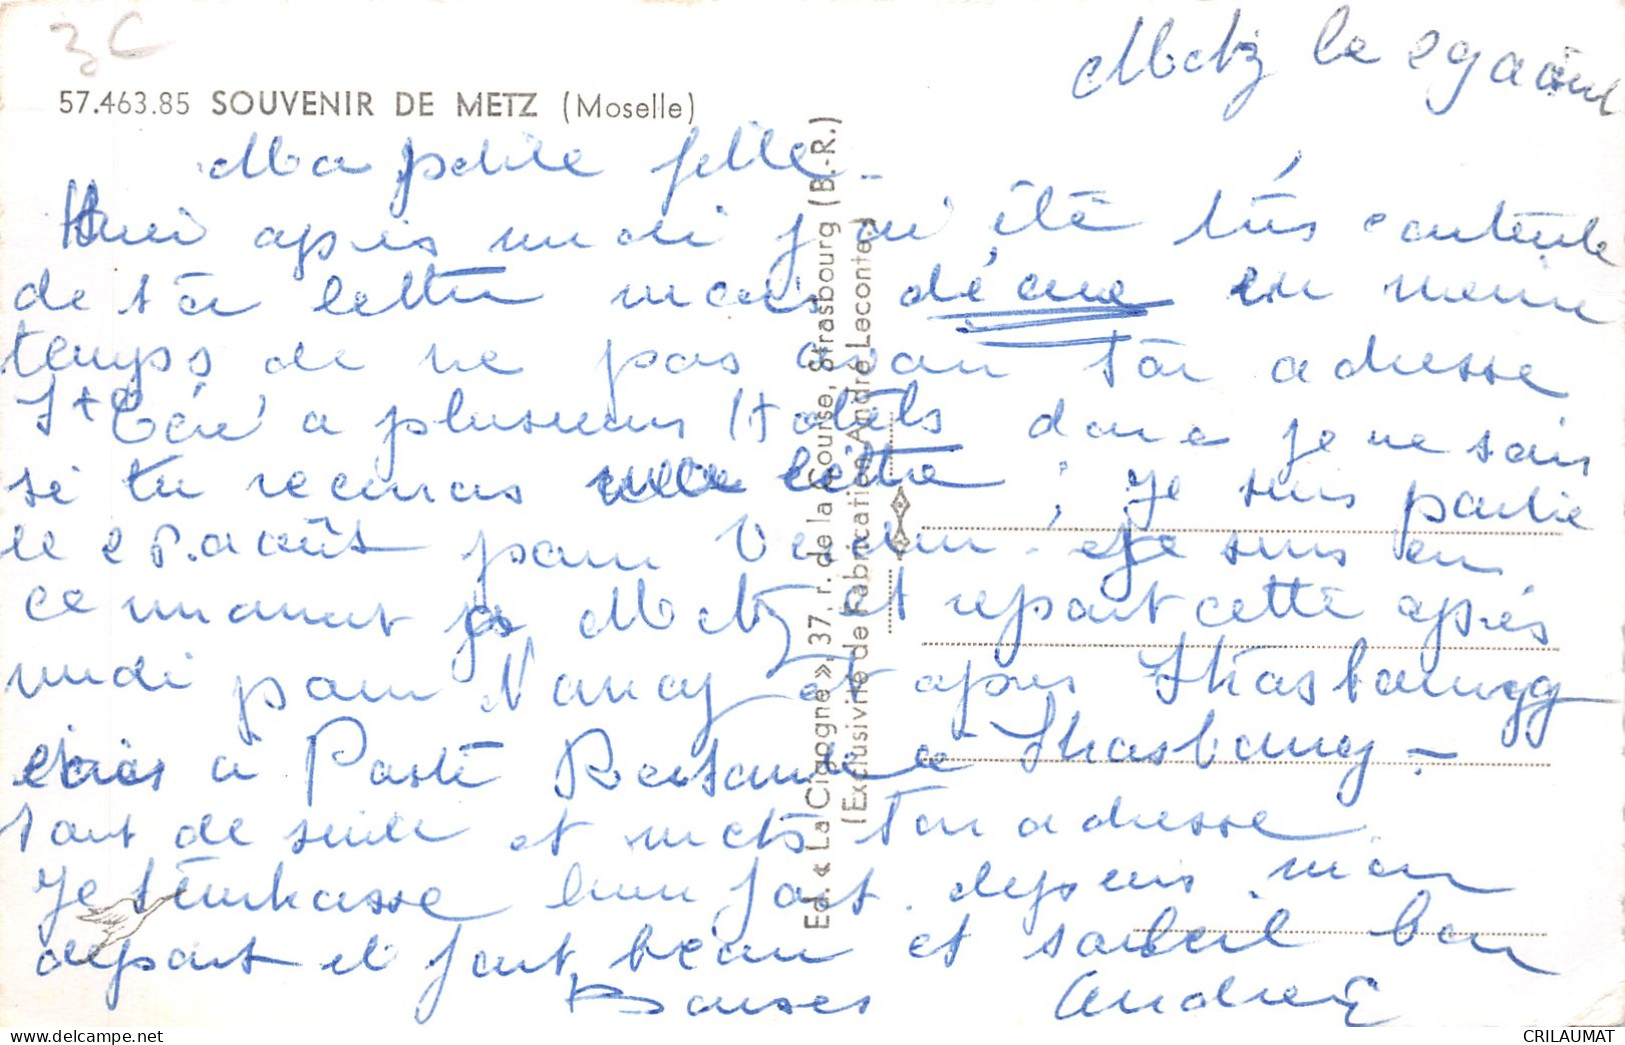 3C
Metz le 29 août
57.463.85 SOUVENIR DE METZ (Moselle)
Ma petite fille -
Hier après midi j'ai été très contente
de ta lettre mais déçue en meme
temps de ne pas avoir ton adresse
St Céré a plusieurs Hotels donc je ne sais
si tu recevras cette lettre ; Je suis partie
le 28 août pour Verdun. Je suis en
ce moment a Metz et repart cette après
midi pour Nancy et après Strasbourg
écris a Poste Restante a Strasbourg -
tout de suite et mets ton adresse.
Je t'embrasse bien fort. depuis mon
depart il fait beau et soleil bon
Baises Andree
Ed. « La Cigogne », 37, r. de la Course, Strasbourg (B.-R.)
(Exclusivité de Fabrication André Leconte)
CRILAUMAT